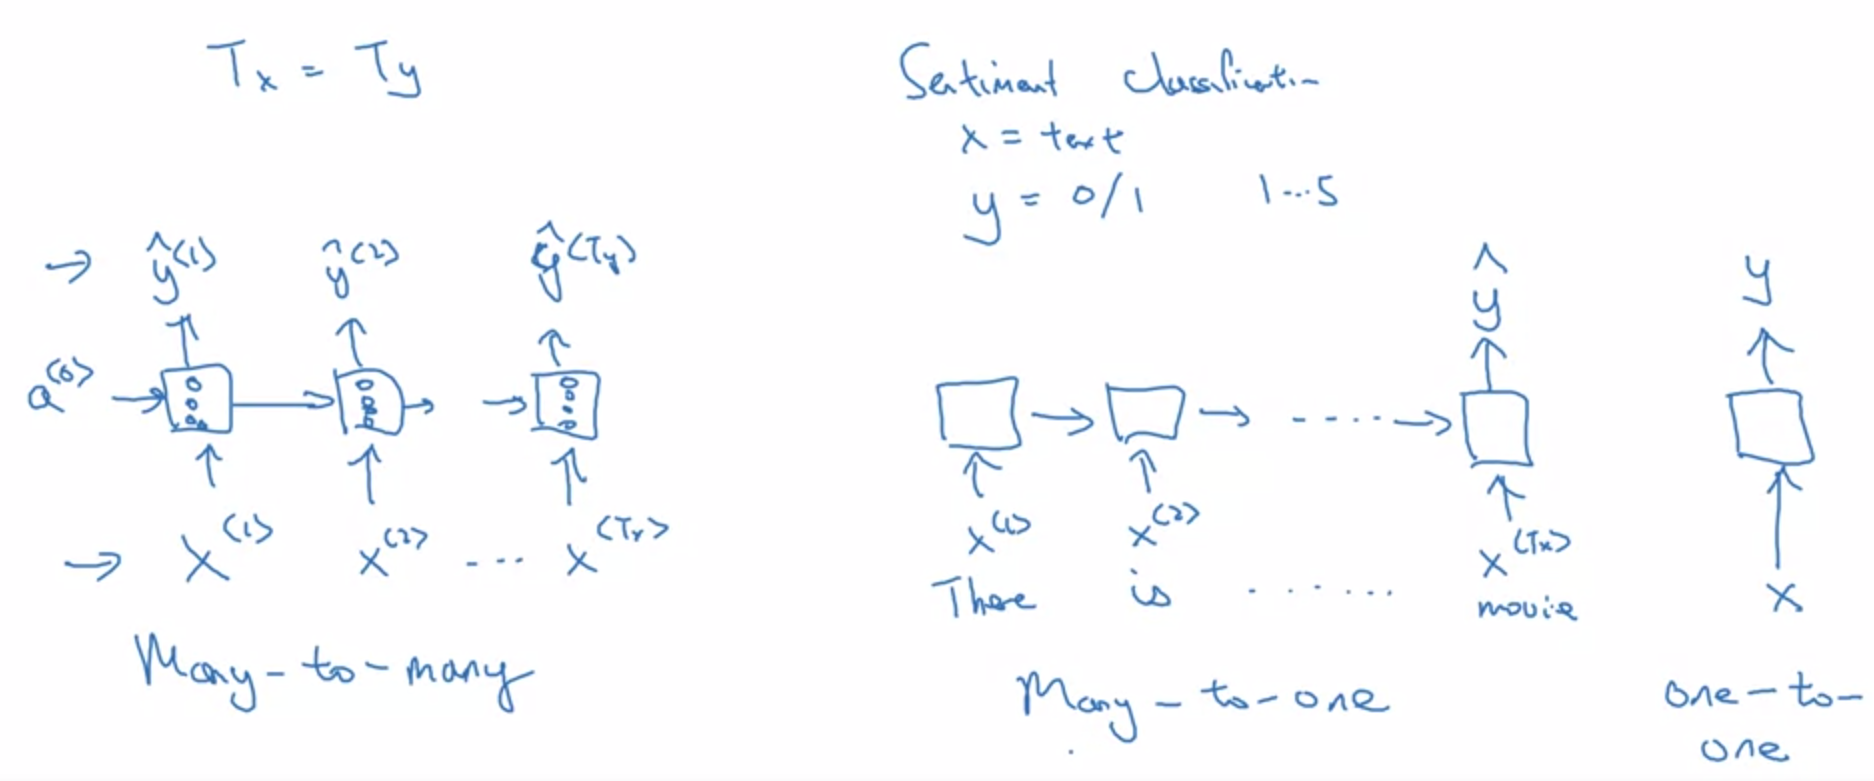 Tx = Ty
ŷ<1> ŷ<2> ŷ<Ty>
a<0>
x<1> x<2> ... x<Tx>
Many-to-many
Sentiment Classification
x = text
y = 0/1 1...5
ŷ
x<1> x<2> ...... x<Tx>
There is ...... movie
Many-to-one
y
x
one-to-
one